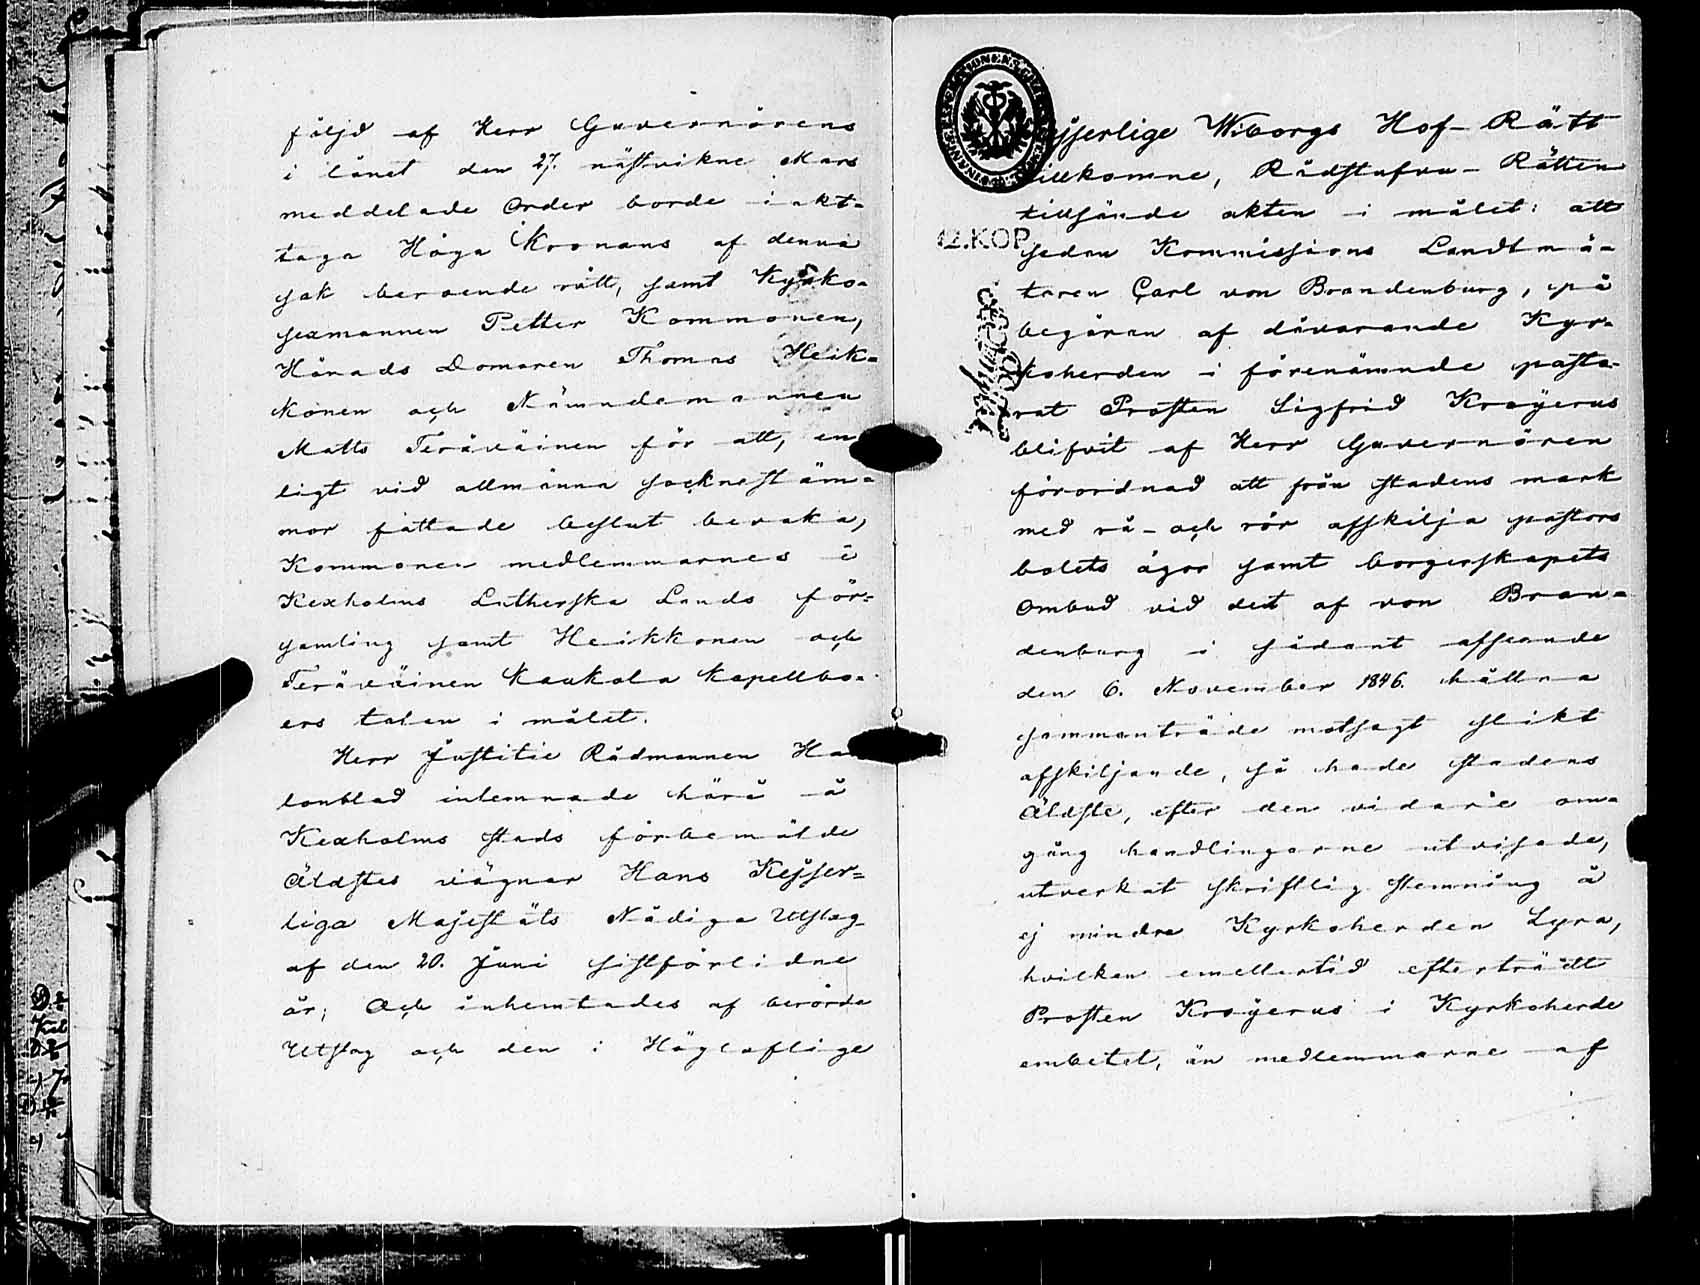 följd af Herr Guvernörens
i länet den 27. nästvikne Mars
meddelade Order borde iakt-
taga Höga Kronans af denna
sak beroende rätt, samt Kyrko-
sexmannen Petter Kommonen,
Härads Domaren Thomas Heik-
konen och Nämndemannen
Matts Teräväinen för att, en
ligt vid allmänna sockneståm-
mor fattade beslut bevaka,
Kommonen medlemmarnes i
Kexholms Lutherska Lands för-
samling samt Heikkonen och
Teräväinen Kaukola Kapellbo-
ers talan i målet.
Herr Justitie Rådmannen Ha
lonblad inlemnade härå å
Kexholms stads förbemälde
Äldstes vägnar Hans Kejser-
liga Majestäts Nådiga Utslag
af den 20. Juni sistförlidne
år; Och inhemtades af berörda
Utslag och den i Höglofliga
Kejserlige Wiborgs Hof-Rätt
tillkomne, Rådstufvu-Rätten
tillsände akten i målet: att
12.KOP.
sedan Kommissions Landtmä-
taren Carl von Brandenburg, på
begäran af dåvarande Kyr-
koherden i förenämnde pasto-
rat Prosten Sigfrid Krogerus
blifvit af Herr Guvernören
förordnad att från stadens mark
med rå- och rör afskilja pastors
bolets ägor samt borgerskapets
Ombud vid det af von Bran-
denburg i sådant afseende
den 6. November 1846. hållna
sammanträde motsagt slikt
afskiljande, så hade stadens
Äldste, efter den vidare om-
gång handlingarne utvisade,
utverkat skriftlig stemning å
ej mindre Kyrkoherden Lyra,
hvilken emellertid efterträdt
Prosten Krogerus i Kyrkoherde
embetet, än medlemmarne af